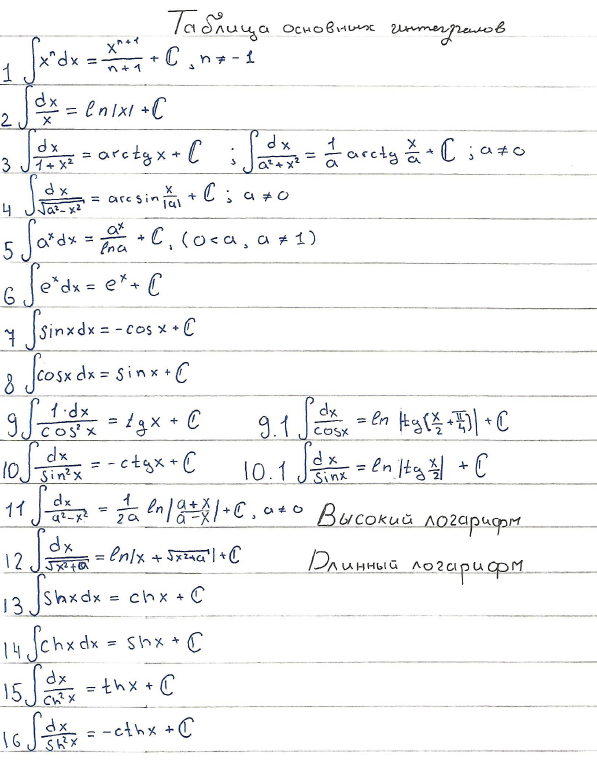 Таблица основных интегралов
1 ∫xⁿdx = xⁿ⁺¹/(n+1) + ℂ, n ≠ -1
2 ∫dx/x = ln|x| + ℂ
3 ∫dx/(1+x²) = arctgx + ℂ ; ∫dx/(a²+x²) = 1/a arctg x/a + ℂ ; a≠0
4 ∫dx/√(a²-x²) = arcsin x/|a| + ℂ ; a ≠ 0
5 ∫aˣdx = aˣ/lna + ℂ, (0<a, a ≠ 1)
6 ∫eˣdx = eˣ + ℂ
7 ∫sinxdx = -cosx + ℂ
8 ∫cosxdx = sinx + ℂ
9 ∫1·dx/cos²x = tgx + ℂ 9.1 ∫dx/cosx = ln|tg(x/2 + π/4)| + ℂ
10 ∫dx/sin²x = -ctgx + ℂ 10.1 ∫dx/sinx = ln|tg x/2| + ℂ
11 ∫dx/(a²-x²) = 1/2a ln|(a+x)/(a-x)| + ℂ, a≠0 Высокий логарифм
12 ∫dx/√(x²+a) = ln|x + √(x²+a)| + ℂ Длинный логарифм
13 ∫shxdx = chx + ℂ
14 ∫chxdx = shx + ℂ
15 ∫dx/ch²x = thx + ℂ
16 ∫dx/sh²x = -cthx + ℂ